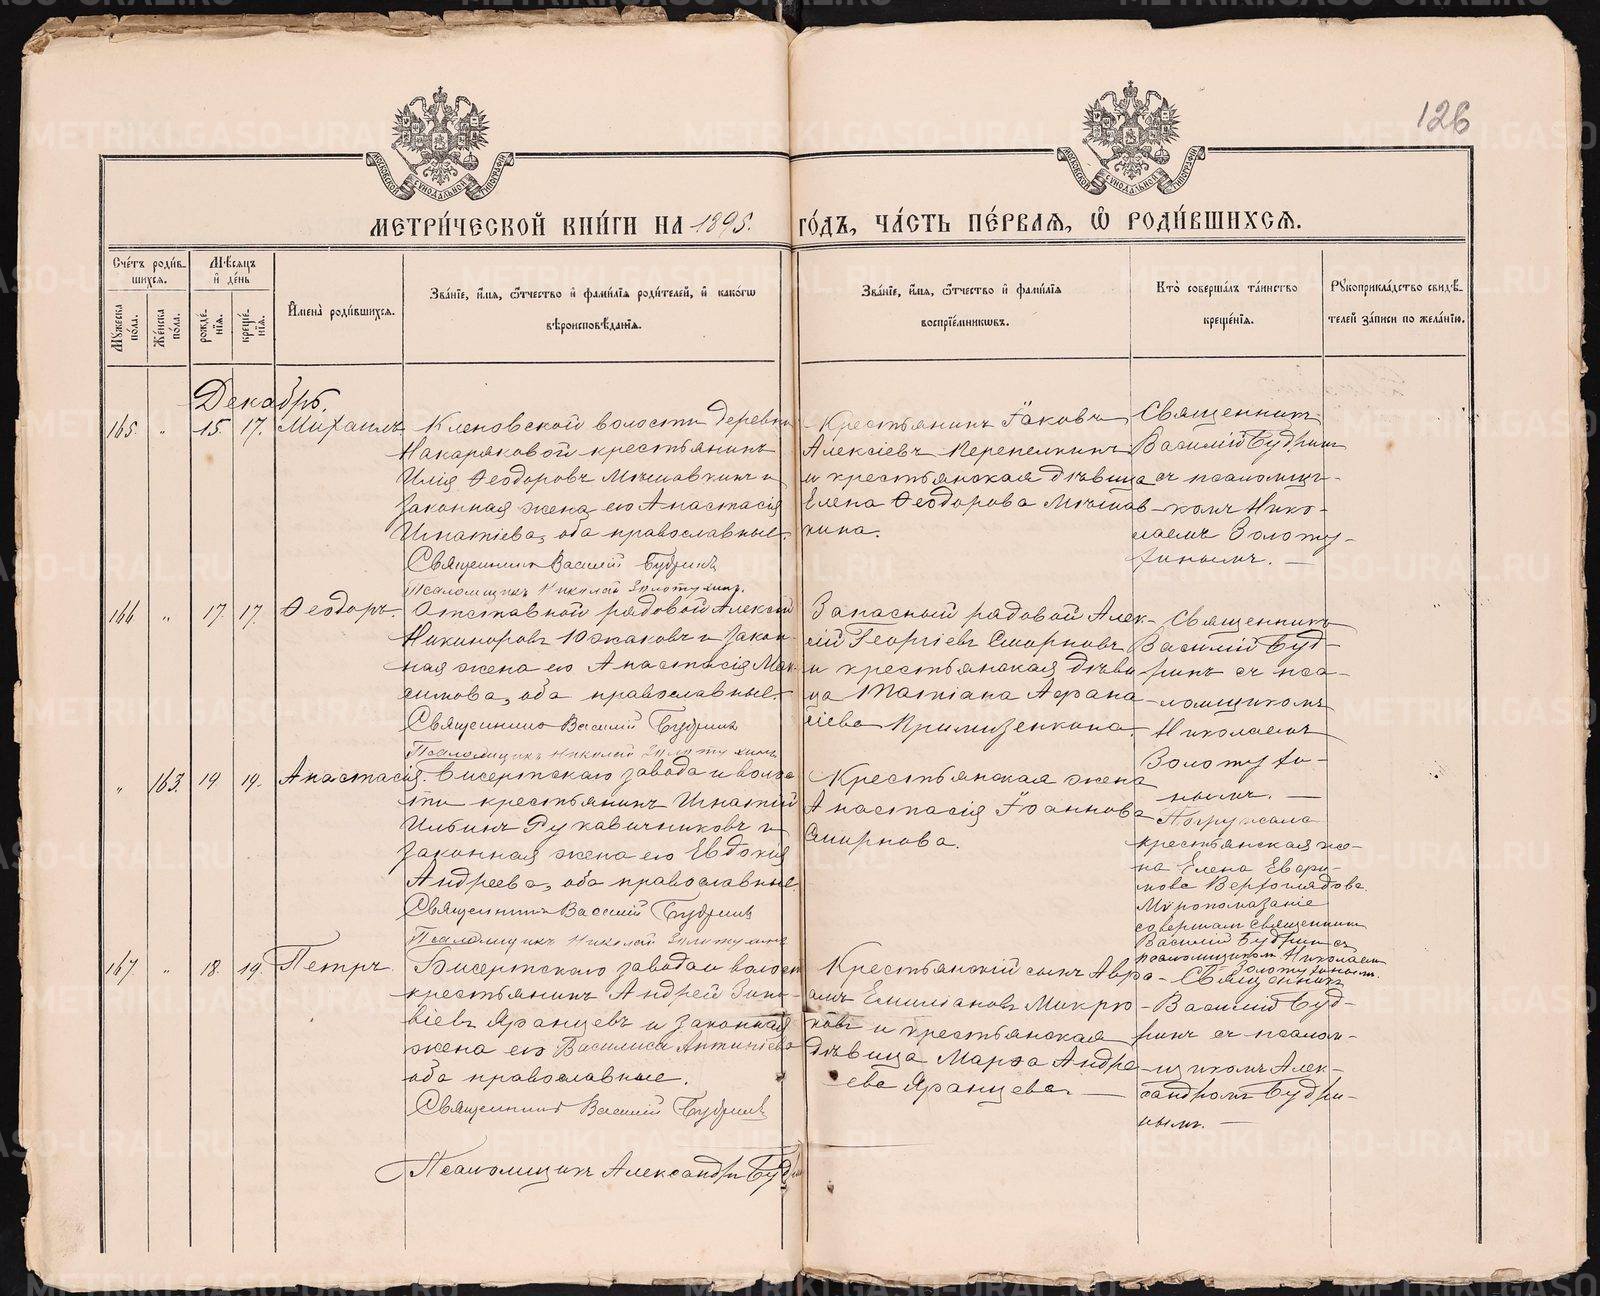 126
МОСКОВСКОЙ СѴНОДАЛЬНОЙ ТИПОГРАФІИ
МОСКОВСКОЙ СѴНОДАЛЬНОЙ ТИПОГРАФІИ
МЕТРИ́ЧЕСКОЙ КНИ́ГИ НА 1895. ГО́ДЪ, ЧА́СТЬ ПЕ́РВАЯ, Ѡ РОДИ́ВШИХСЯ.
Сче́тъ роди́в-
шихся.
Му́жеска по́ла.
Же́нска по́ла.
Мѣ́сяцъ
и де́нь
рожде́-
нія.
креще́-
нія.
Имена̀ роди́вшихся.
Зва́ніе, и́мя, ѻ́тчество и фами́лія роди́телей, и како́гѡ
вѣроисповѣ́данія.
Зва́ніе, и́мя, ѻ́тчество и фами́лія
воспріе́мникѡвъ.
Кто̀ соверша́лъ та́инство
креще́нія.
Рукоприкла́дство свидѣ́-
телей за́писи по жела́нію.
Декабрь.
165. „ 15. 17. Михаилъ
Кленовской волости деревни
Накаряковой крестьянинъ
Илія Ѳеодоровъ Мѣшавкинъ и
законная жена его Анастасія
Игнатіева, оба православные.
Священникъ Василій Будринъ
Псаломщикъ Николай Золотухинъ.
Крестьянинъ Іаковъ
Алексіевъ Перепелкинъ
и крестьянская дѣвица
Елена Ѳеодорова Мѣшав-
кина.
Священникъ
Василій Будринъ
съ псаломщи-
комъ Нико-
лаемъ Золоту-
хинымъ. —
166. „ 17. 17. Ѳеодоръ.
Отставной рядовой Алексій
Никаноровъ Южаковъ и закон-
ная жена его Анастасія Мак-
симова, оба православные.
Священникъ Василій Будринъ
Псаломщикъ Николай Золотухинъ
Запасный рядовой Алек-
сій Георгіевъ Смирновъ
и крестьянская дѣви-
ца Татіана Аѳана-
сіева
Священникъ
Василій Буд-
ринъ съ пса-
ломщикомъ
Николаемъ
Золотухи-
нымъ. —
„ 163. 19. 19. Анастасія.
Бисертскаго завода и волос-
ти крестьянинъ Игнатій
Ильинъ Рукавичниковъ и
законная жена его Евдокія
Андреева, оба православные.
Священникъ Василій Будринъ
Псаломщикъ Николай Золотухинъ
Крестьянская жена
Анастасія Іоаннова
Смирнова.
Погружала
крестьянская же-
на Елена Евфи-
мова Верхоглядова.
Мѵропомазаніе
совершалъ священникъ
Василій Будринъ съ
псаломщикомъ Николаемъ
Золотухинымъ.
167. „ 18. 19. Петръ.
Бисертскаго завода и волости
крестьянинъ Андрей Зино-
віевъ Яранцевъ и законная
жена его Василиса Антипіева
оба православные.
Священникъ Василій Будринъ
Псаломщикъ Александръ Будринъ
Крестьянскій сынъ Авра-
амъ Емиліановъ Мокрю-
ковъ и крестьянская
дѣвица Марѳа Андре-
ева Яранцева. —
Священникъ
Василій Буд-
ринъ съ псалом-
щикомъ Алек-
сандромъ Будри-
нымъ. —